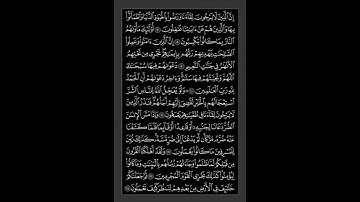 إِنَّ ٱلَّذِينَ لَا يَرْجُونَ لِقَآءَنَا وَرَضُوا۟ بِٱلْحَيَوٰةِ ٱلدُّنْيَا وَٱطْمَأَنُّوا۟
بِهَا وَٱلَّذِينَ هُمْ عَنْ ءَايَٰتِنَا غَٰفِلُونَ ٧ أُو۟لَٰٓئِكَ مَأْوَىٰهُمُ
ٱلنَّارُ بِمَا كَانُوا۟ يَكْسِبُونَ ٨ إِنَّ ٱلَّذِينَ ءَامَنُوا۟ وَعَمِلُوا۟
ٱلصَّٰلِحَٰتِ يَهْدِيهِمْ رَبُّهُم بِإِيمَٰنِهِمْ تَجْرِى مِن تَحْتِهِمُ
ٱلْأَنْهَٰرُ فِى جَنَّٰتِ ٱلنَّعِيمِ ٩ دَعْوَىٰهُمْ فِيهَا سُبْحَٰنَكَ
ٱللَّهُمَّ وَتَحِيَّتُهُمْ فِيهَا سَلَٰمٌ وَءَاخِرُ دَعْوَىٰهُمْ أَنِ ٱلْحَمْدُ
لِلَّهِ رَبِّ ٱلْعَٰلَمِينَ ١٠ ۞ وَلَوْ يُعَجِّلُ ٱللَّهُ لِلنَّاسِ ٱلشَّرَّ
ٱسْتِعْجَالَهُم بِٱلْخَيْرِ لَقُضِىَ إِلَيْهِمْ أَجَلُهُمْ فَنَذَرُ ٱلَّذِينَ
لَا يَرْجُونَ لِقَآءَنَا فِى طُغْيَٰنِهِمْ يَعْمَهُونَ ١١ وَإِذَا مَسَّ ٱلْإِنسَٰنَ
ٱلضُّرُّ دَعَانَا لِجَنۢبِهِۦٓ أَوْ قَاعِدًا أَوْ قَآئِمًا فَلَمَّا كَشَفْنَا
عَنْهُ ضُرَّهُۥ مَرَّ كَأَن لَّمْ يَدْعُنَآ إِلَىٰ ضُرٍّ مَّسَّهُۥ كَذَٰلِكَ زُيِّنَ
لِلْمُسْرِفِينَ مَا كَانُوا۟ يَعْمَلُونَ ١٢ وَلَقَدْ أَهْلَكْنَا ٱلْقُرُونَ
مِن قَبْلِكُمْ لَمَّا ظَلَمُوا۟ وَجَآءَتْهُمْ رُسُلُهُم بِٱلْبَيِّنَٰتِ وَمَا كَانُوا۟
لِيُؤْمِنُوا۟ كَذَٰلِكَ نَجْزِى ٱلْقَوْمَ ٱلْمُجْرِمِينَ ١٣ ثُمَّ جَعَلْنَٰكُمْ
خَلَٰٓئِفَ فِى ٱلْأَرْضِ مِنۢ بَعْدِهِمْ لِنَنظُرَ كَيْفَ تَعْمَلُونَ ١٤